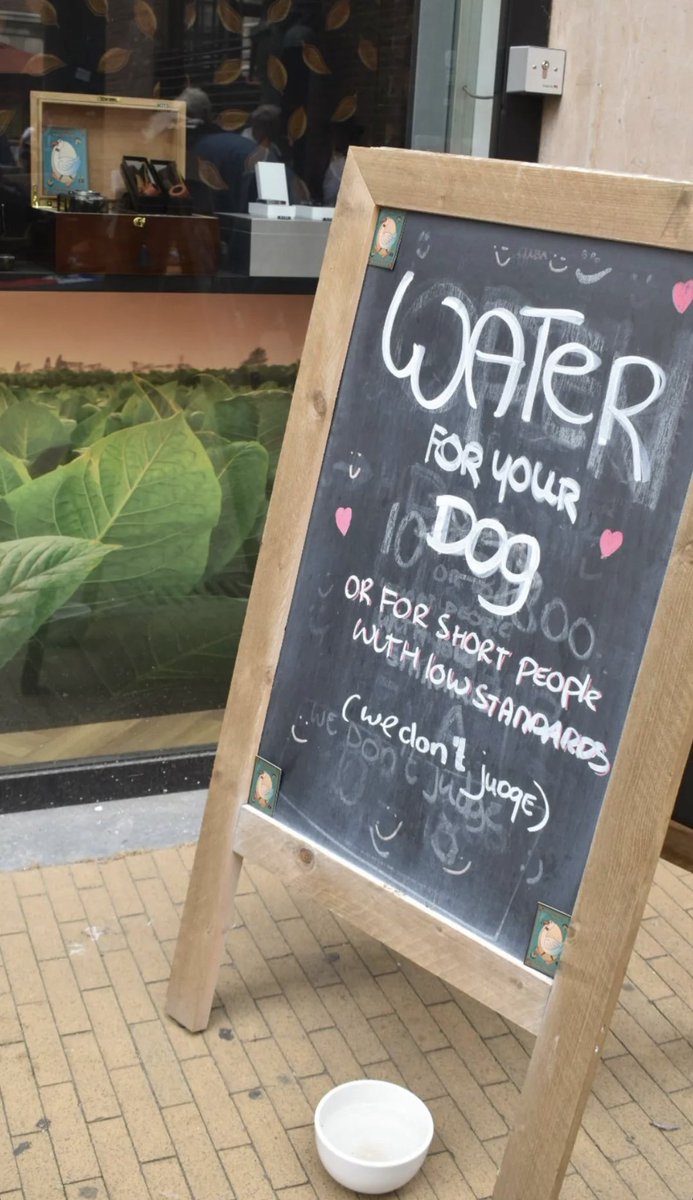 WATER
FOR YOUR
DOG
OR FOR SHORT PEOPLE
WUTH lOW STANDARDS
(we don't judge)